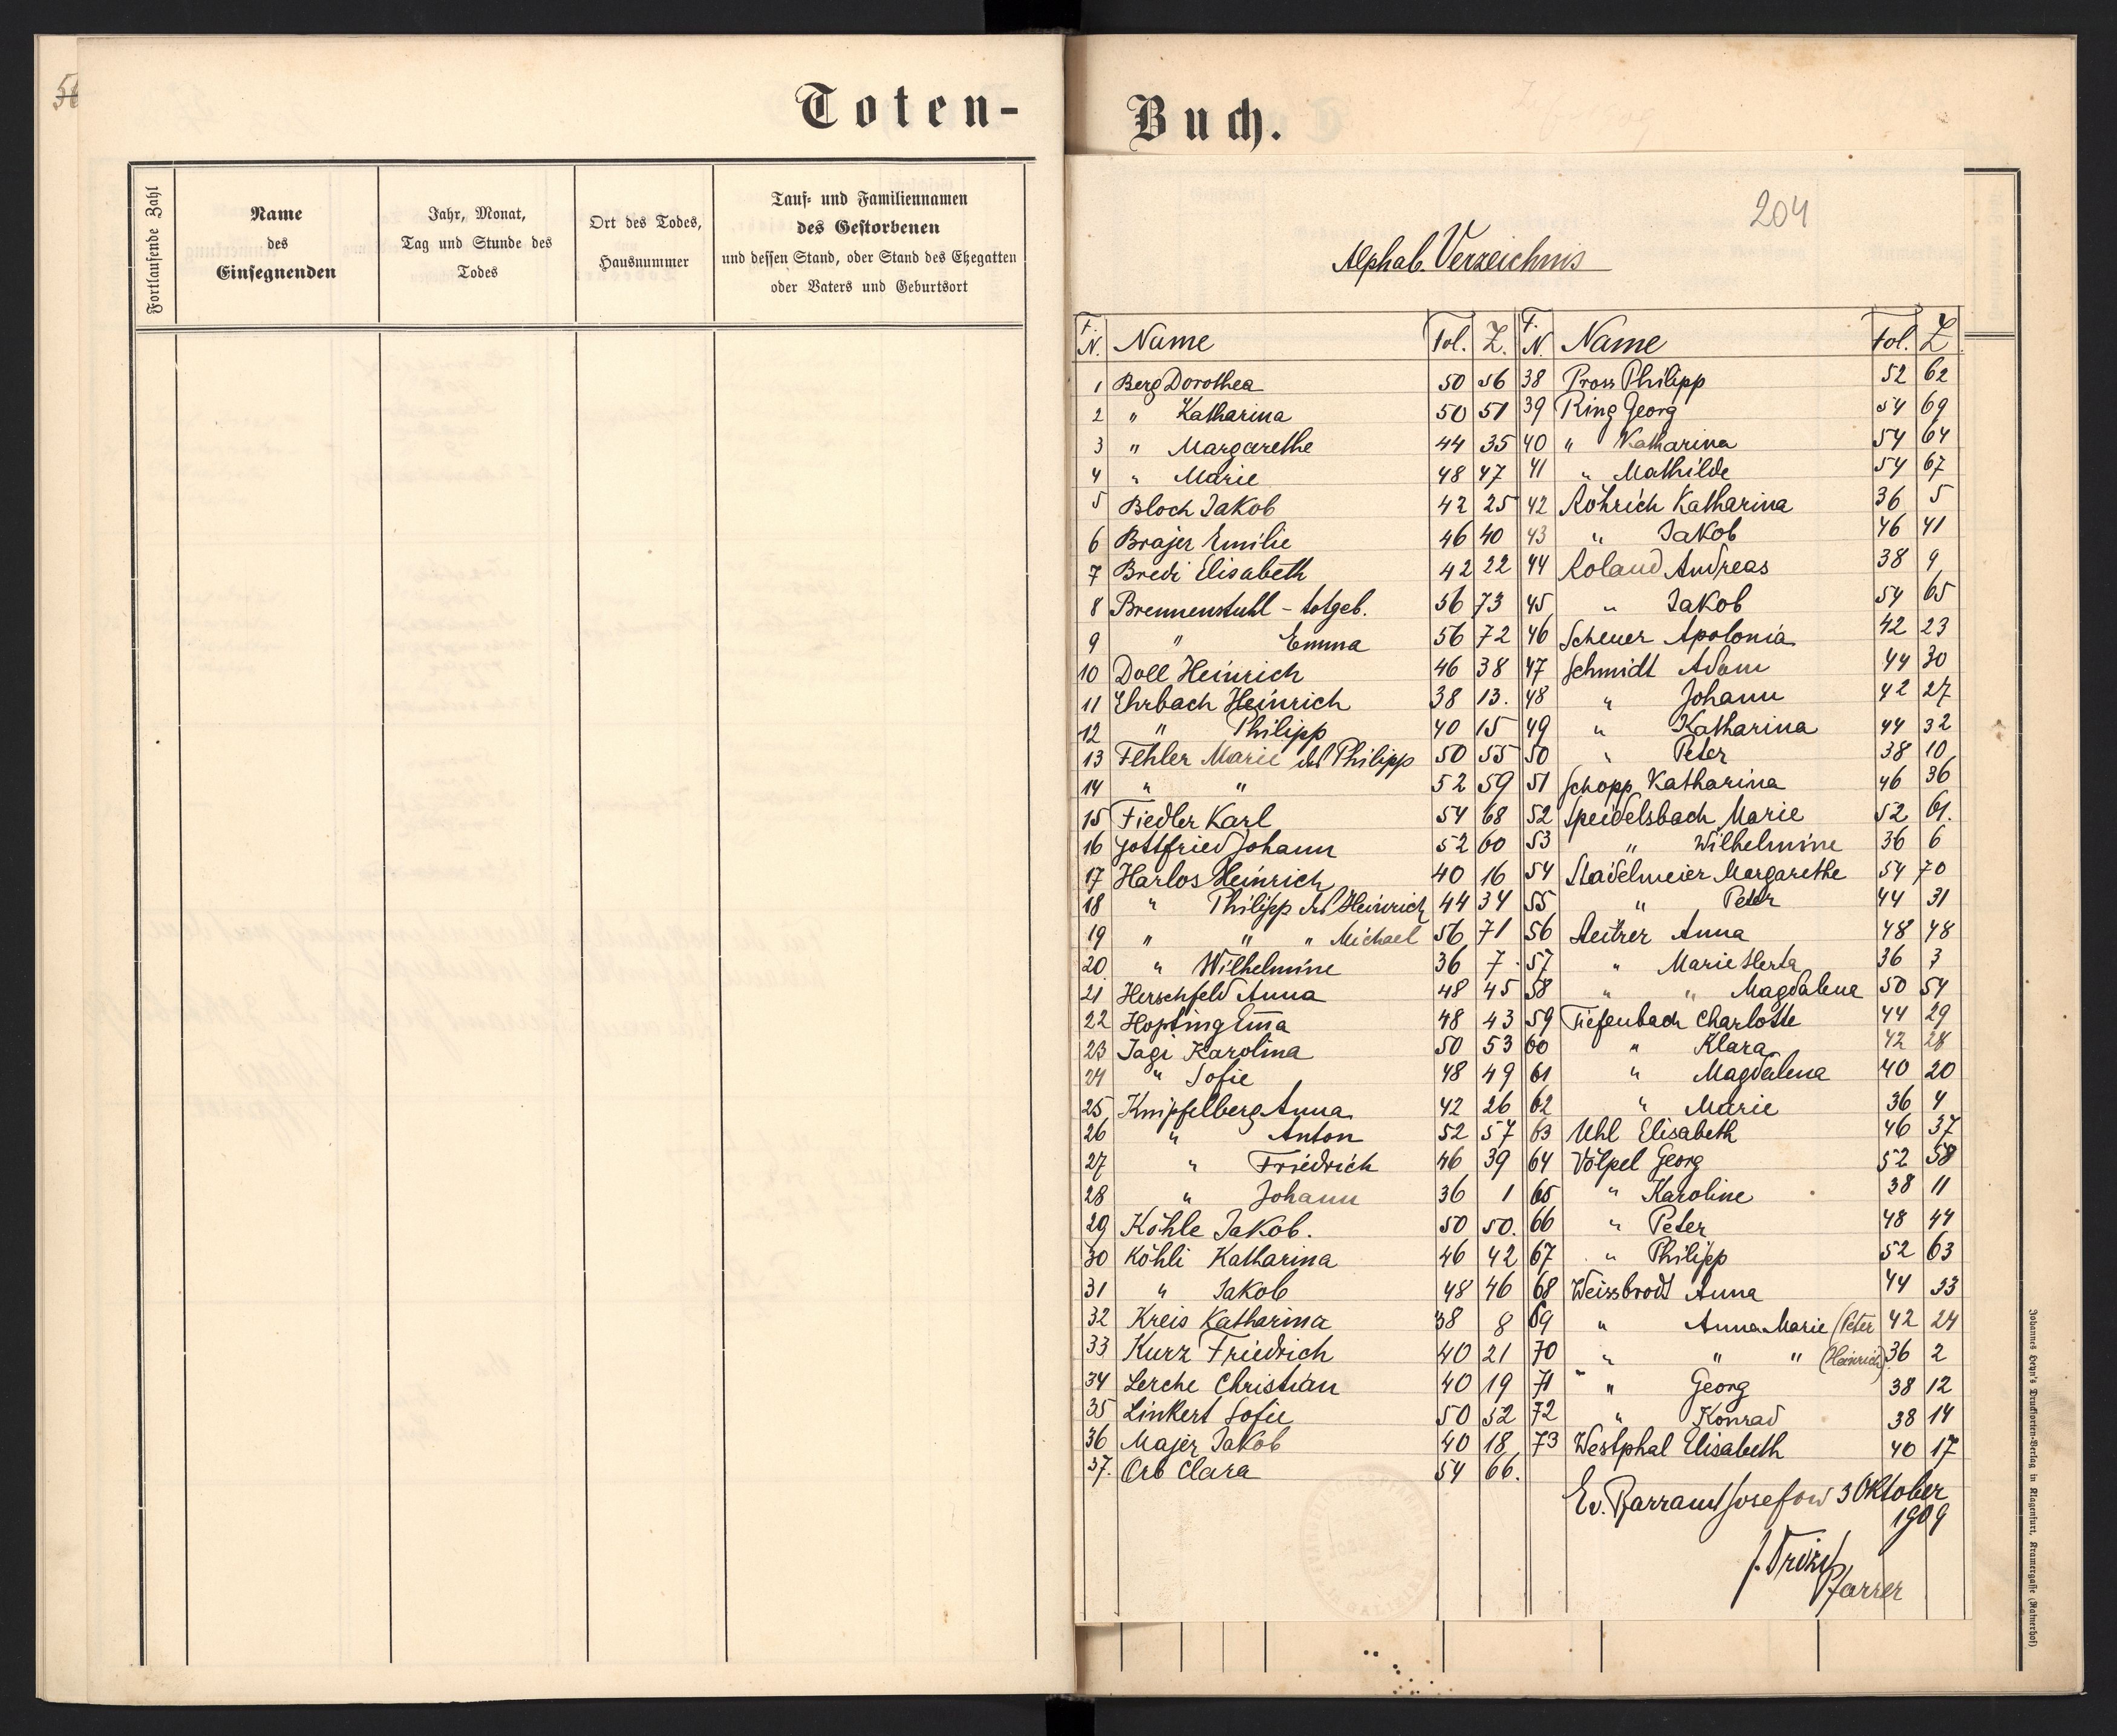 Toten-
Fortlaufende Zahl
Name
des
Einsegnenden
Jahr, Monat,
Tag und Stunde des
Todes
Ort des Todes,
Hausnummer
Tauf- und Familiennamen
des Gestorbenen
und dessen Stand, oder Stand des Ehegatten
oder Vaters und Geburtsort
Buch.
204
Alphab. Verzeichnis
F. N. Name Fol. Z. F. N. Name Fol. Z
1 Berg Dorothea 50 56 38 Pross Philipp 52 62
2 " Katharina 50 51 39 Ring Georg 54 69
3 " Margarethe 44 35 40 " Katharina 54 64
4 " Marie 48 47 41 " Mathilde 54 67
5 Bloch Jakob 42 25 42 Röhrich Katharina 36 5
6 Brajer Emilie 46 40 43 " Jakob 46 41
7 Bredi Elisabeth 42 22 44 Roland Andreas 38 9
8 Brennenstuhl - totgeb. 56 73 45 " Jakob 54 65
9 " Emma 56 72 46 Scheuer Apolonia 42 23
10 Doll Heinrich 46 38 47 Schmidt Adam 44 30
11 Ehrbach Heinrich 38 13. 48 " Johann 42 27
12 " Philipp 40 15 49 " Katharina 44 32
13 Fehler Marie des Philipp 50 55 50 " Peter 38 10
14 " " 52 59 51 Schopp Katharina 46 36
15 Fiedler Karl 54 68 52 Speidelsbach Marie 52 61.
16 Gottfried Johann 52 60 53 " Wilhelmine 36 6
17 Harlos Heinrich 40 16 54 Stadelmeier Margarethe 54 70
18 " Philipp des Heinrich 44 34 55 " Peter 44 31
19 " " " Michael 56 71 56 Anna 48 48
20 " Wilhelmine 36 7 57 " Marie Herta 36 3
21 Herschfeld Anna 48 45 58 " " Magdalena 50 54
22 Hopfing Em̄a 48 43 59 Tiefenbach Charlotte 44 29
23 Jagi Karolina 50 53 60 " Klara 42 28
24 " Sofie 48 49 61 " Magdalena 40 20
25 Knipfelberg Anna 42 26 62 " Marie 36 4
26 " Anton 52 57 63 Uhl Elisabeth 46 37
27 " Friedrich 46 39 64 Völpel Georg 52 58
28 " Johann 36 1 65 " Karoline 38 11
29 Köhle Jakob. 50 50. 66 " Peter 48 44
30 Köhli Katharina 46 42 67 " Philipp 52 63
31 " Jakob 48 46 68 Weissbrodt Anna 44 33
32 Kreis Katharina 38 8 69 " Anna Marie (Peter 42 24
33 Kurz Friedrich 40 21 70 " " " (Heinrich) 36 2
34 Lerche Christian 40 19 71 " Georg 38 12
35 Linkert Sofie 50 52 72 " Konrad 38 14
36 Majer Jakob 40 18 73 Westphal Elisabeth 40 17
37. Orb Clara 54 66.
Ev. Pfarramt Josefow 3 Oktober
1909
Pfarrer
Johannes Heyn's Drucksorten-Verlag in Klagenfurt, Kramergasse (Rainerhof)